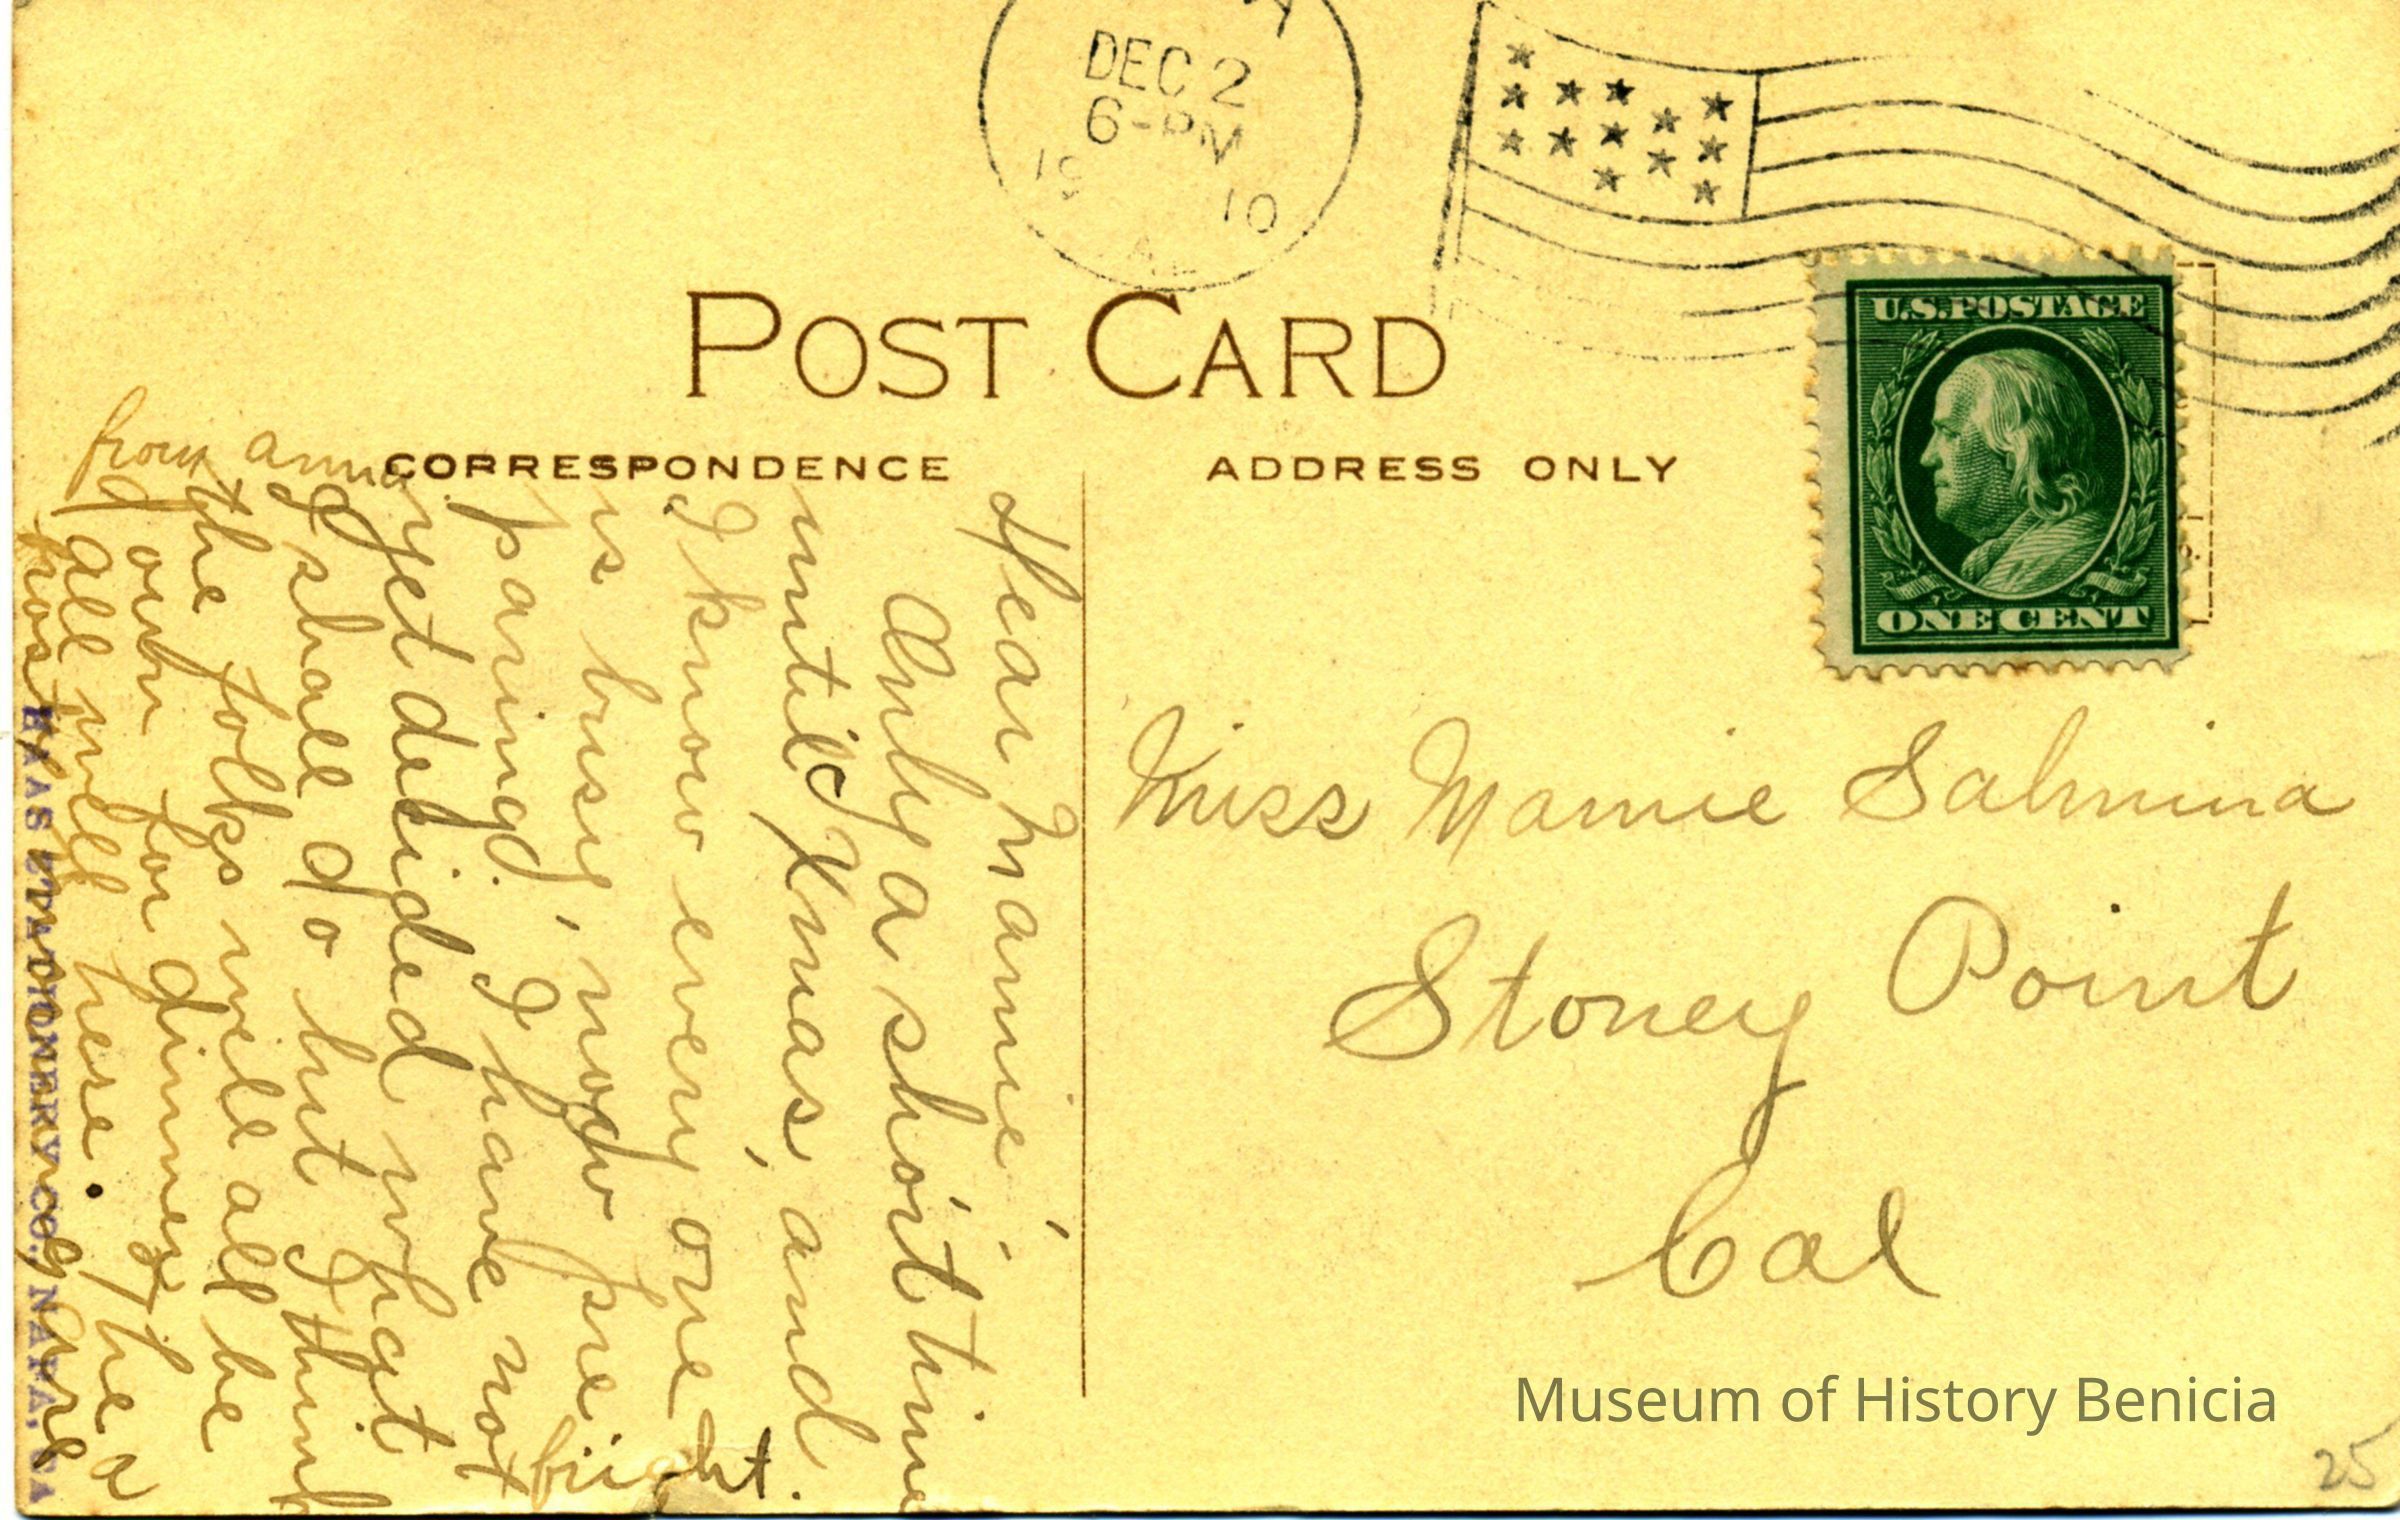 DEC 2
6-PM
19 10
POST CARD
CORRESPONDENCE
ADDRESS ONLY
U.S. POSTAGE
ONE CENT
Miss Mamie Salmina
Stoney Point
Cal
Dear Mamie,
Only a short time
until Xmas, and
I know every one
is busy, now pre
paring. I have not
yet desided what
I shall do but I think
the folks will all be
down for dinner
all well here. The a
most
from Anna
HAAS STATIONERY CO., NAPA, CA
Museum of History Benicia
25